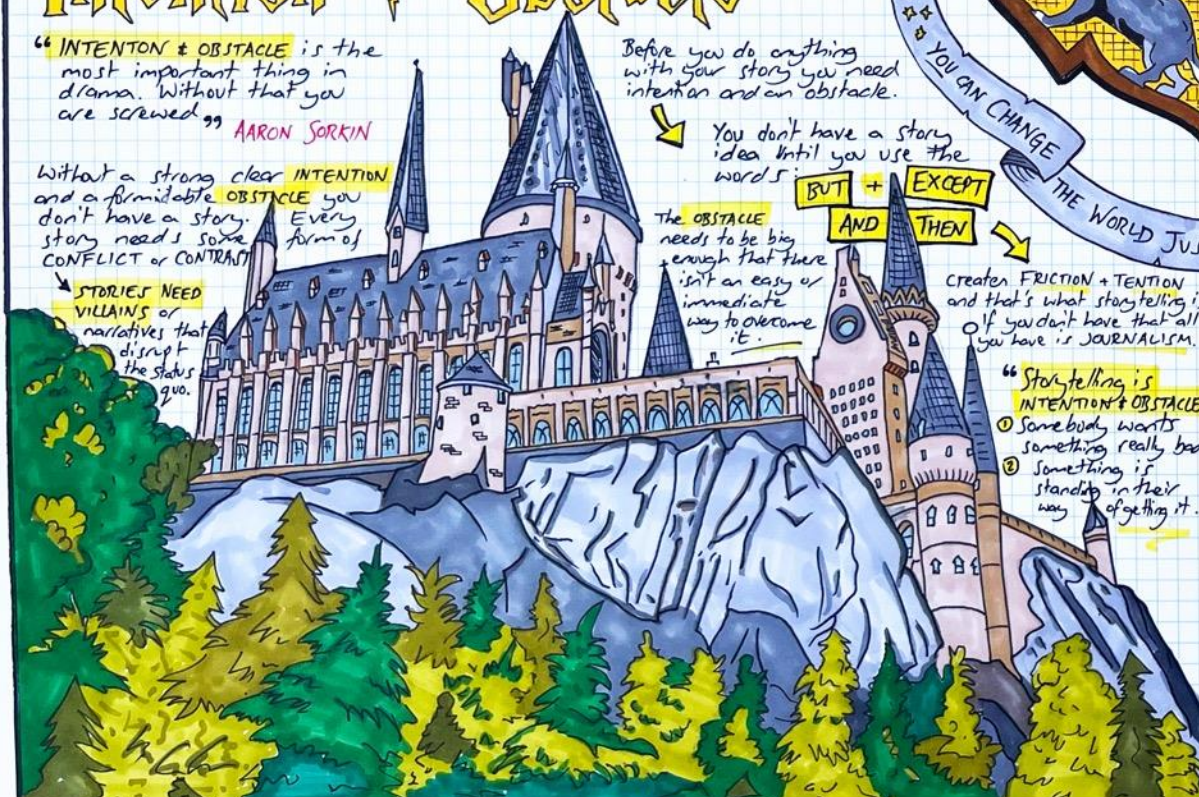 Intention & Obstacle
“ INTENTON & OBSTACLE is the
most important thing in
drama. Without that you
are screwed ”
AARON SORKIN
Without a strong clear INTENTION
and a formidable OBSTACLE you
don't have a story. Every
story needs some form of
CONFLICT or CONTRAST
STORIES NEED
VILLAINS or
narratives that
disrupt
the status
quo.
Before you do anything
with your story you need
intention and an obstacle.
You don't have a story
idea until you use the
words:
BUT + EXCEPT
AND THEN
The OBSTACLE
needs to be big
enough that there
isn't an easy or
immediate
way to overcome
it.
creates FRICTION + TENTION
and that's what storytelling is
If you don't have that all
you have is JOURNALISM.
“ Storytelling is
INTENTION & OBSTACLE
① Somebody wants
something really bad
② something is
standing in their
way of getting it.
YOU CAN CHANGE
THE WORLD JU